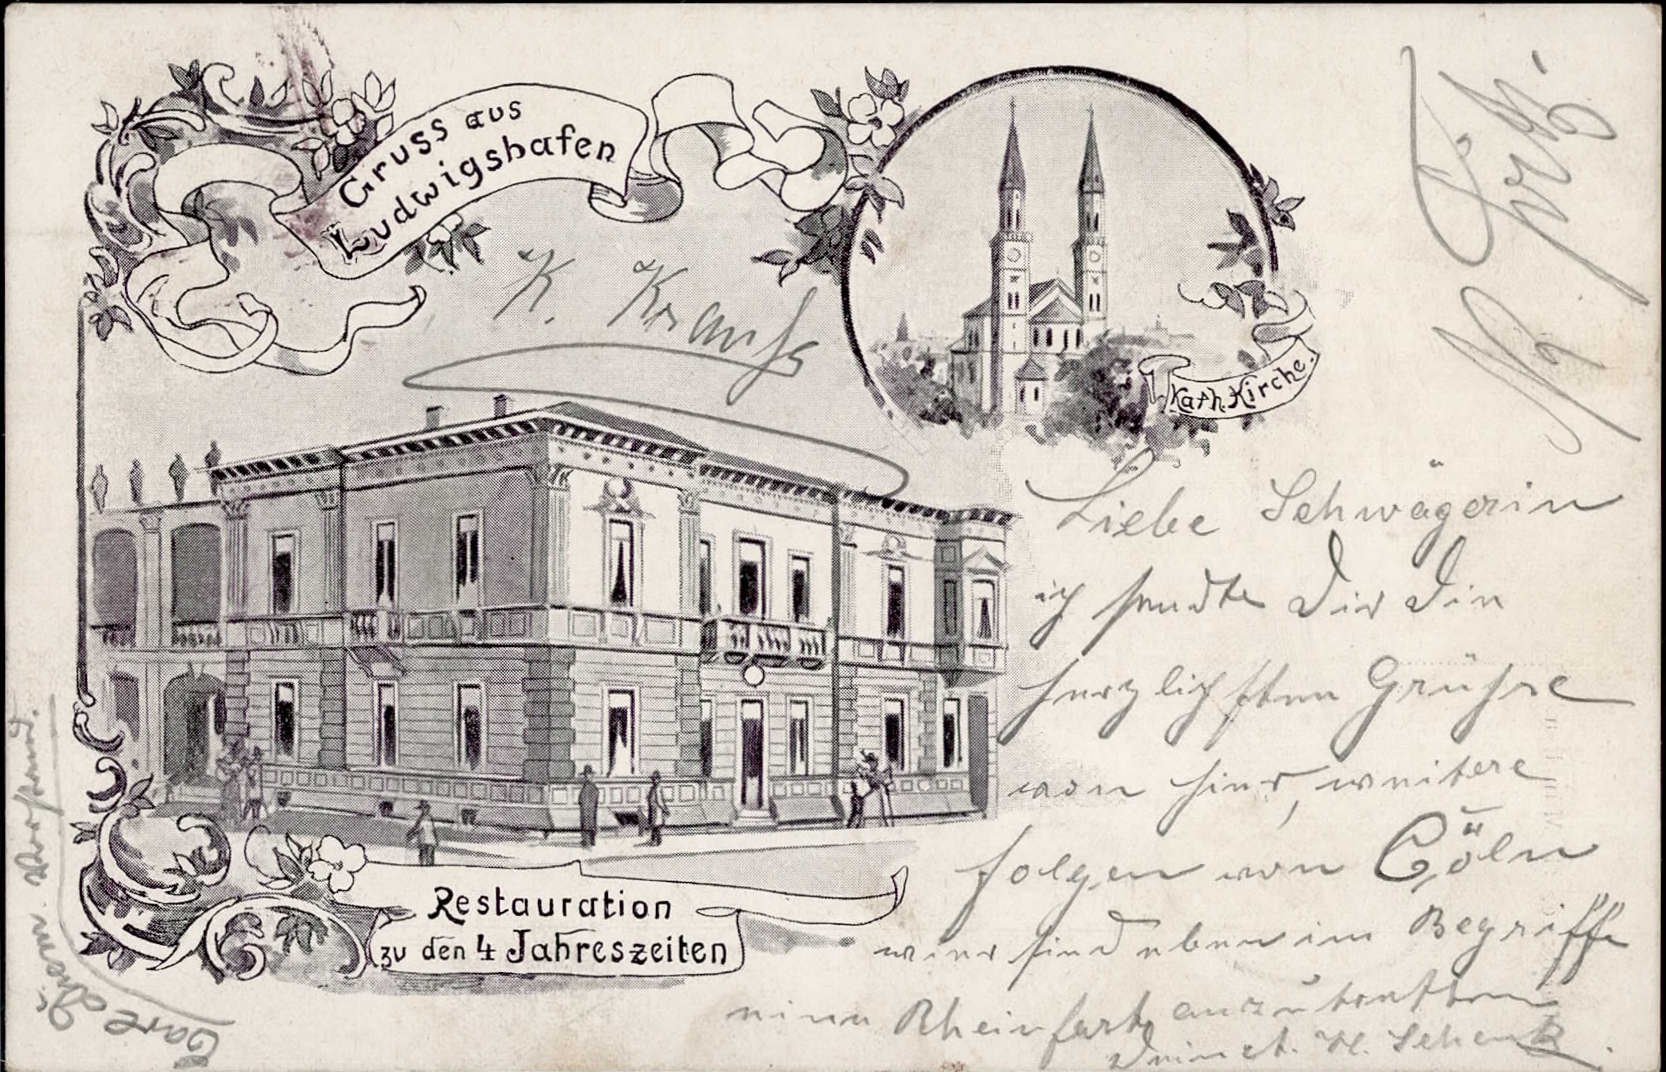 Gruss aus
Ludwigshafen
Kath. Kirche.
K. Krauss
Restauration
zu den 4 Jahreszeiten
Liebe Schwägerin
ich sendte Dir Die
herzlichsten Grüsse
von hier, weitere
folgen von Cöln
wir sind eben im Begriffe
eine Rheinfart anzutretten
H. Schenk
Carl